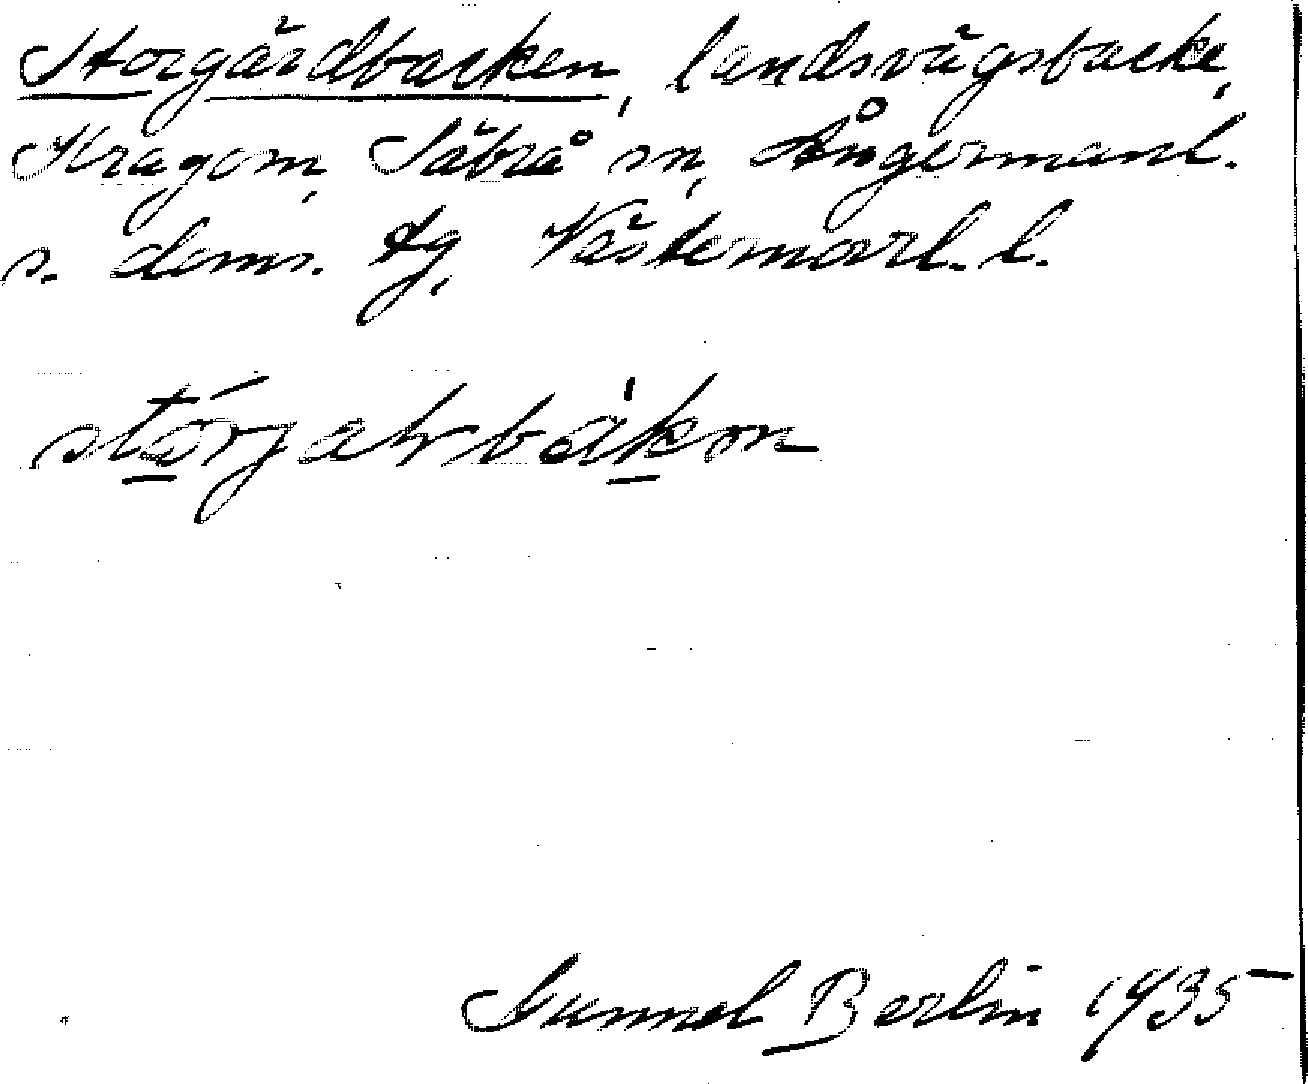 Storgårdbacken, landsvägsbacke,
Kragom, Säbrå sn, Ångermanl.
s. doms. tg, Västernorrl. l.
stórjaɽbákɒn
Gunnel Berlin 1935